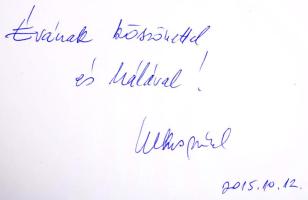 Évának köszönettel
és hálával!
2015.10.12.